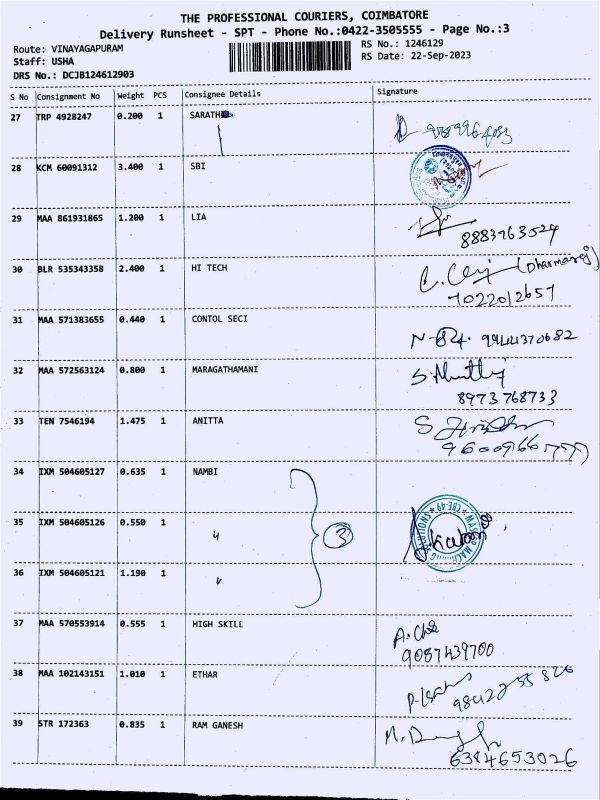 THE PROFESSIONAL COURIERS, COIMBATORE
Delivery Runsheet - SPT - Phone No.:0422-3505555 - Page No.:3
Route: VINAYAGAPURAM
Staff: USHA
DRS No.: DCJB124612903
RS No.: 1246129
RS Date: 22-Sep-2023
S No Consignment No Weight PCS Consignee Details Signature
27 TRP 4928247 0.200 1 SARATH
28 KCM 60091312 3.400 1 SBI
29 MAA 861931865 1.200 1 LIA
8883763524
30 BLR 535343358 2.400 1 HI TECH
(Dharmaraj)
7022012657
31 MAA 571383655 0.440 1 CONTOL SECI
9944370682
32 MAA 572563124 0.800 1 MARAGATHAMANI
8973768733
33 TEN 7546194 1.475 1 ANITTA
34 IXM 504605127 0.635 1 NAMBI
35 IXM 504605126 0.550 1 "
3
36 IXM 504605121 1.190 1 "
37 MAA 570553914 0.555 1 HIGH SKILL
9087439700
38 MAA 102143151 1.010 1 ETHAR
39 STR 172363 0.835 1 RAM GANESH
6384653026